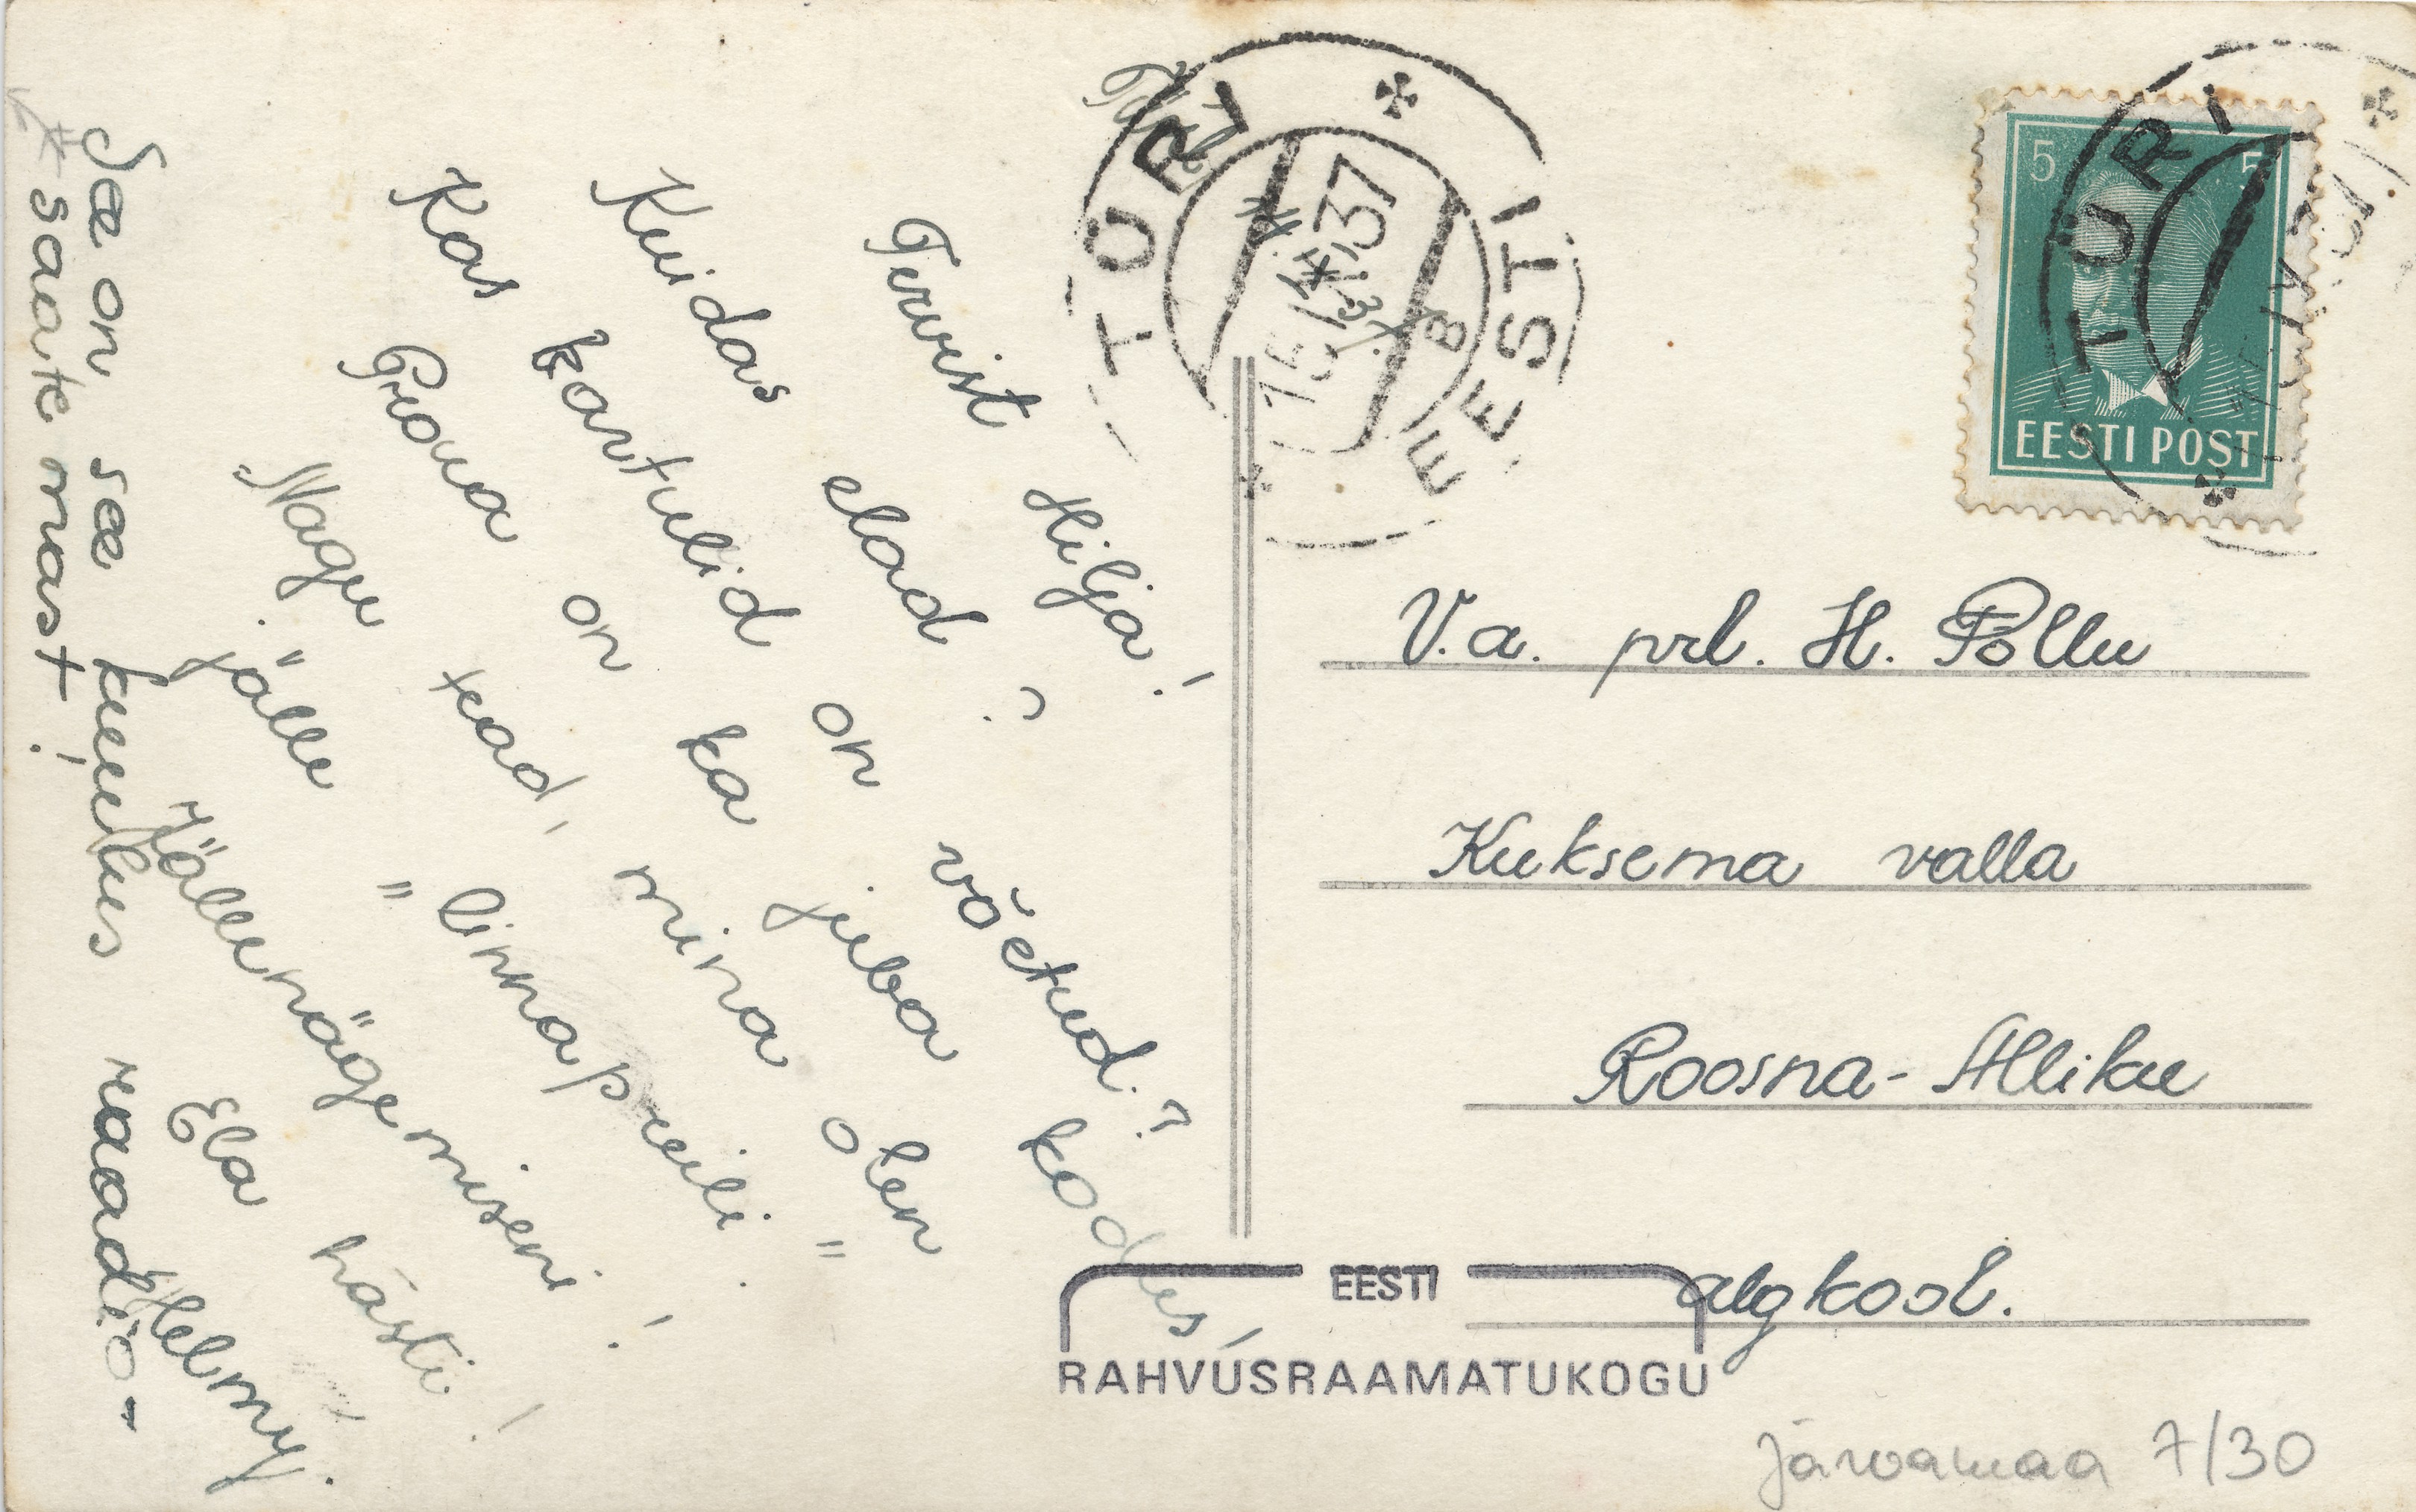 Türi
Tervist Hilja!
Kuidas elad?
Kas kartulid on võetud?
Prova on ka juba kodus,
„Nagu tead, mina olen
jälle „linnapreili".
Jällenägemiseni!
Ela hästi!
Helmy.
See on see kuulus raadio-
saate mast!
TÜRI
EESTI
15 IX 37
B
5 5
EESTI POST
TÜRI
V.a. prl. H. Põllu
Kuksema valla
Roosna-Alliku
algkool.
EESTI
RAHVUSRAAMATUKOGU
Järvamaa 7/30